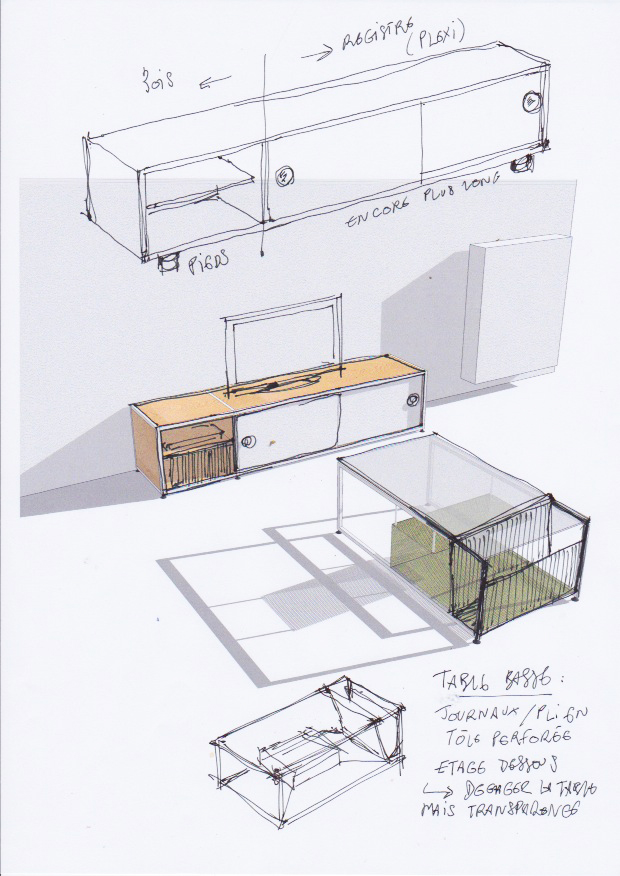 REGISTRE
(PLEXI)
BOIS
ENCORE PLUS LONG
PIEDS
TABLE BASSE :
JOURNAUX / PLI EN
TÔLE PERFORÉE
ETAGE DESSOUS
DEGAGER LA TABLE
MAIS TRANSPARENCE